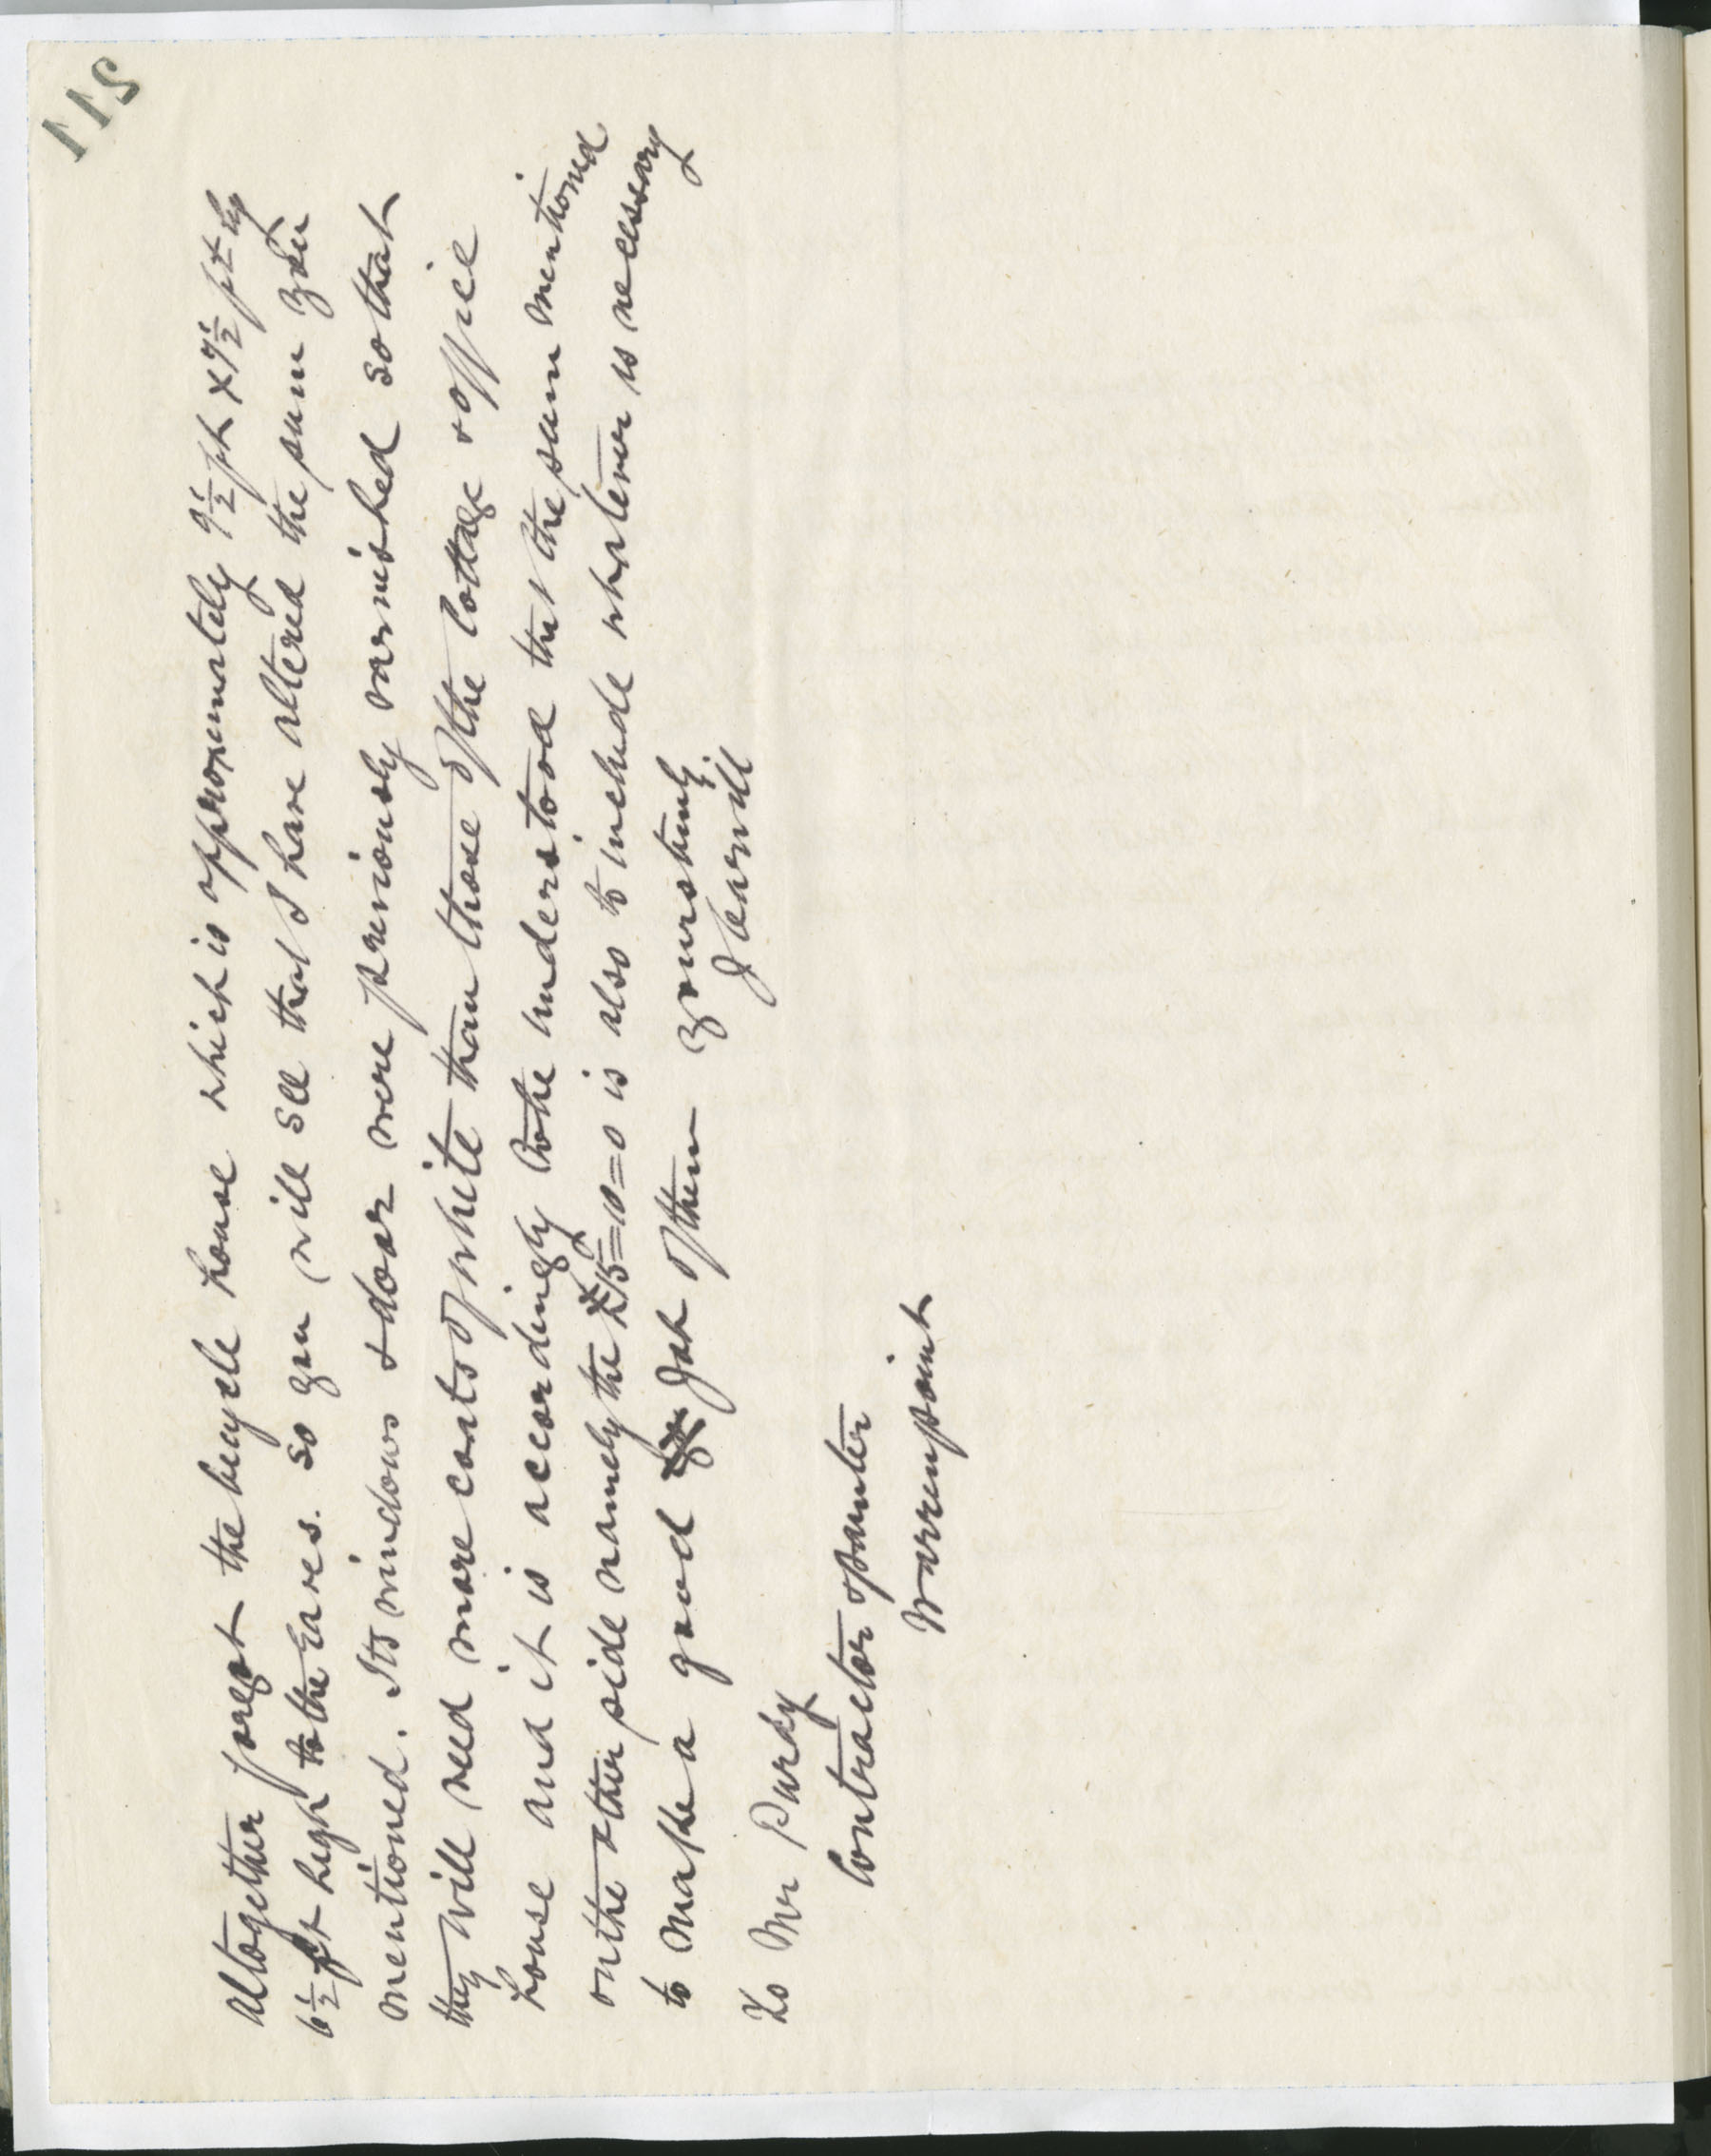 115
altogether forgot the bicycle house which is approximately 9½ ft x 9½ ft by
6½ ft high to the Eaves. so you will see that I have altered the sum you
mentioned. Its windows & door were previously varnished so that
they will need more coats of white than those of the Cottage & office
house and it is accordingly to be understood that the sum mentioned
on the other side namely the £15=10=0 is also to include whatever is necessary
to make a good Job of them yours truly
To Mr Purdy
Contractor & painter
Warrenpoint